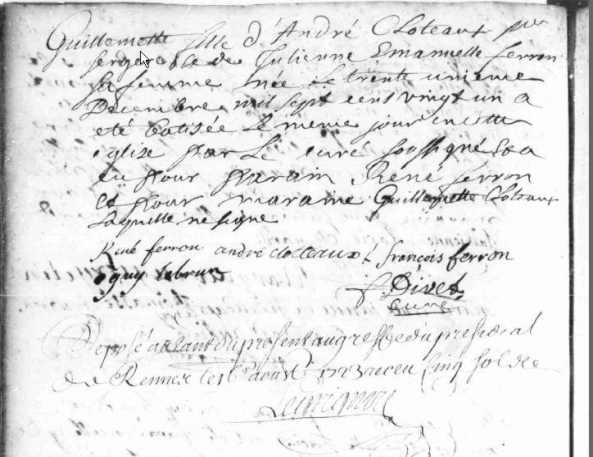 Guillemette fille d'André Cloteaux
serger et de Julienne Emanuelle ferron
sa femme née le trente unieme
Decembre mil sept cent vingt un a
eté batisée le meme jour en cette
église par le curé soussigné et a
eu pour parain René ferron
et pour maraine Guillemette Cloteaux
laquelle ne signe
René ferron andré cloteaux françois ferron
guy lebrun Divet
curé
Deposé autant du present au greffe du presidial
de Rennes le août receu cinq sol